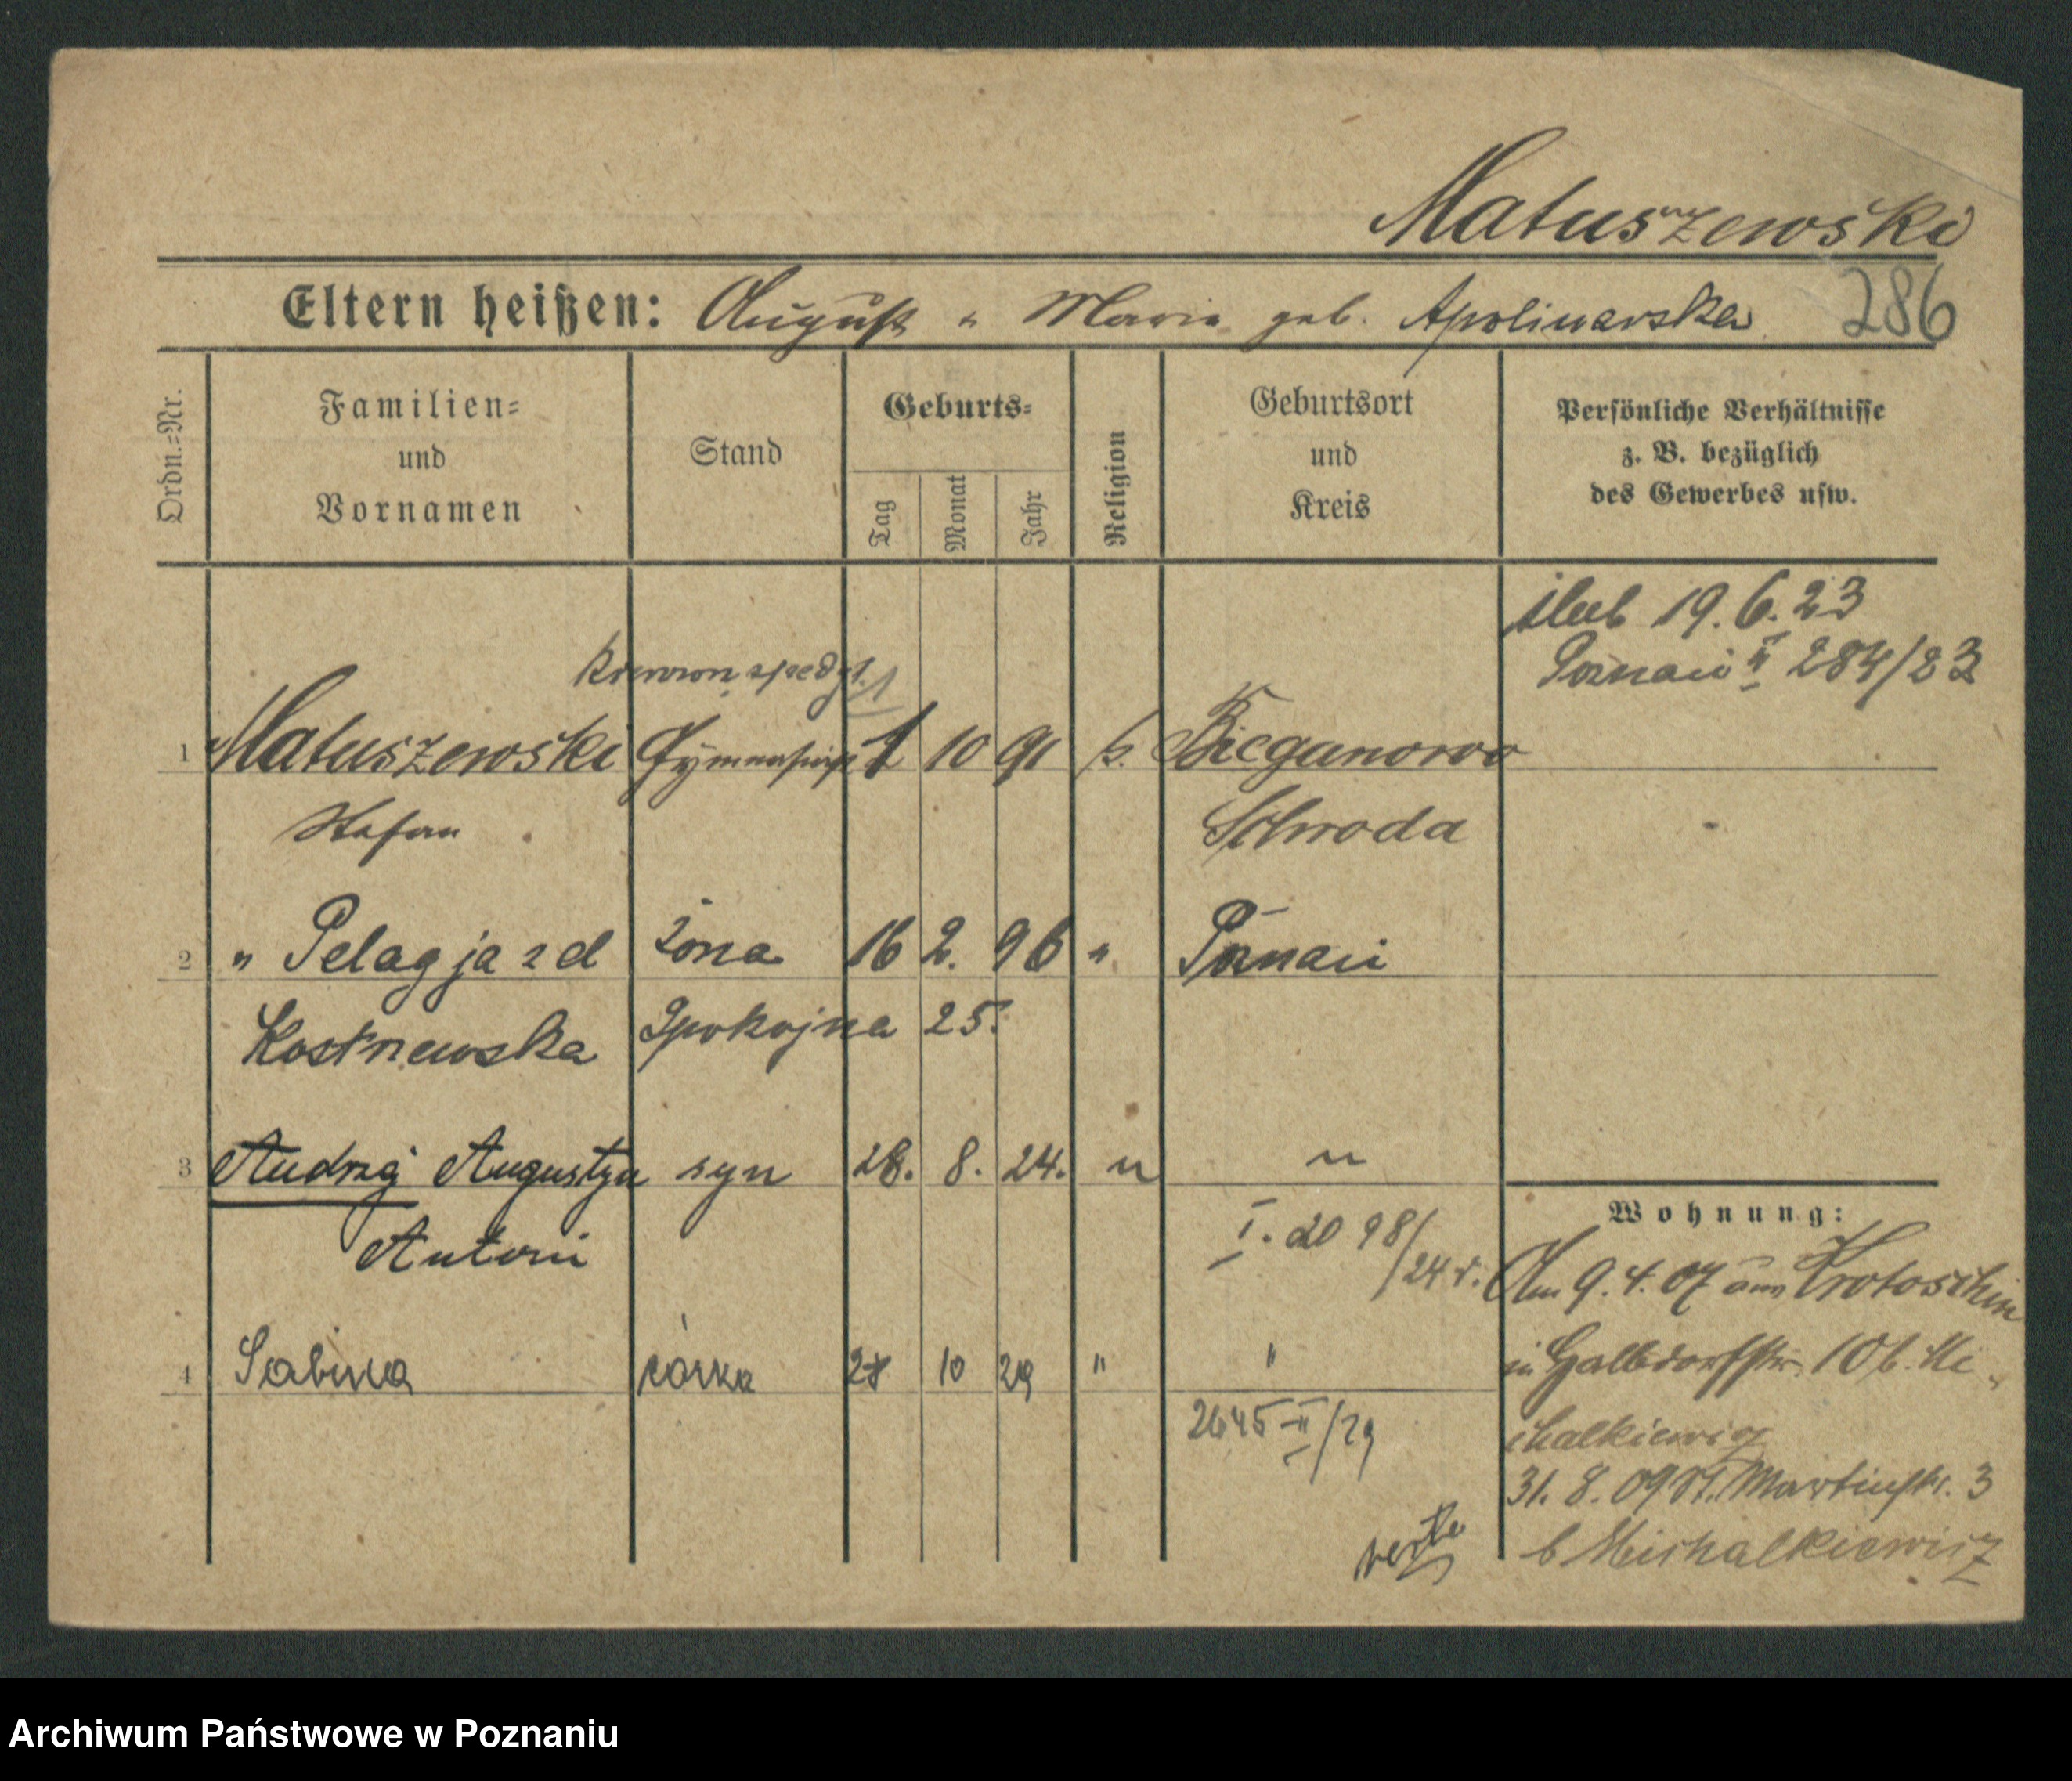 Matuszewski
Eltern heißen: August u Maria geb. Apolinarska 286
Ordn.=Nr.
Familien=
und
Vornamen
Stand
Geburts=
Tag
Monat
Jahr
Religion
Geburtsort
und
Kreis
Persönliche Verhältnisse
z. B. bezüglich
des Gewerbes usw.
ślub 19. 6. 23
Poznań II 284/23
1 Matuszewski 1 10 91 k. Bieganowo
Stefan Schroda
2 " Pelagja zd żona 16 2. 96 " Poznań
Spokojna 25.
3 Andrzej Augustyn syn 28. 8. 24. " "
Antoni
I. 2098/24 r.
4 Sabina córka 28 10 29 " "
2645 II/29
Wohnung:
Am 9. 4. 07 aus Krotoschin
in 10 b. Mi-
chalkiewicz
31. 8. 09 St. Martinstr. 3
b Michalkiewicz
verte
Archiwum Państwowe w Poznaniu